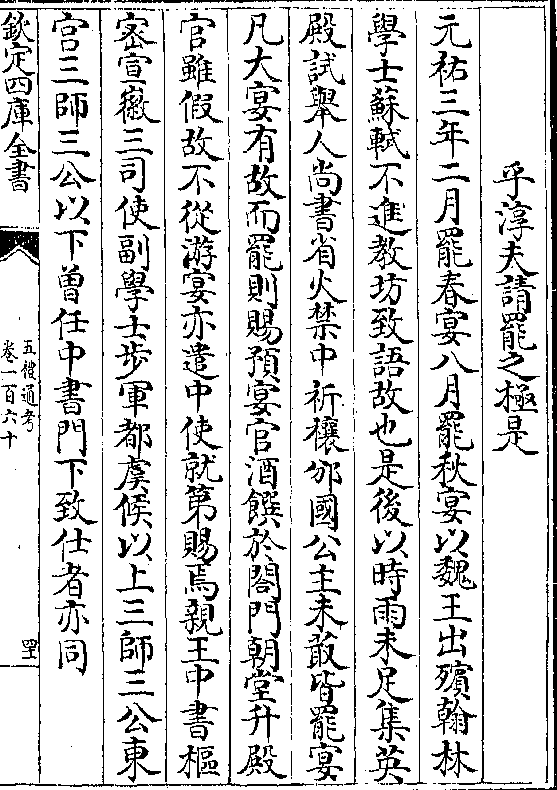 乎淳夫請罷之極是
元祐三年二月罷春宴八月罷秋宴以魏王出殯翰林
學士蘇軾不進教坊致語故也是後以時雨未足集英
殿試舉人尚書省火禁中祈禳邠國公主未敢皆罷宴
凡大宴有故而罷則賜預宴官酒饌於閤門朝堂升殿
官雖假故不從游宴亦遣中使就第賜焉親王中書樞
宻宣徽三司使副學士步軍都虞候以上三師三公東
宫三師三公以下曽任中書門下致仕者亦同
欽定四庫全書
五禮通考
卷一百六十
罕